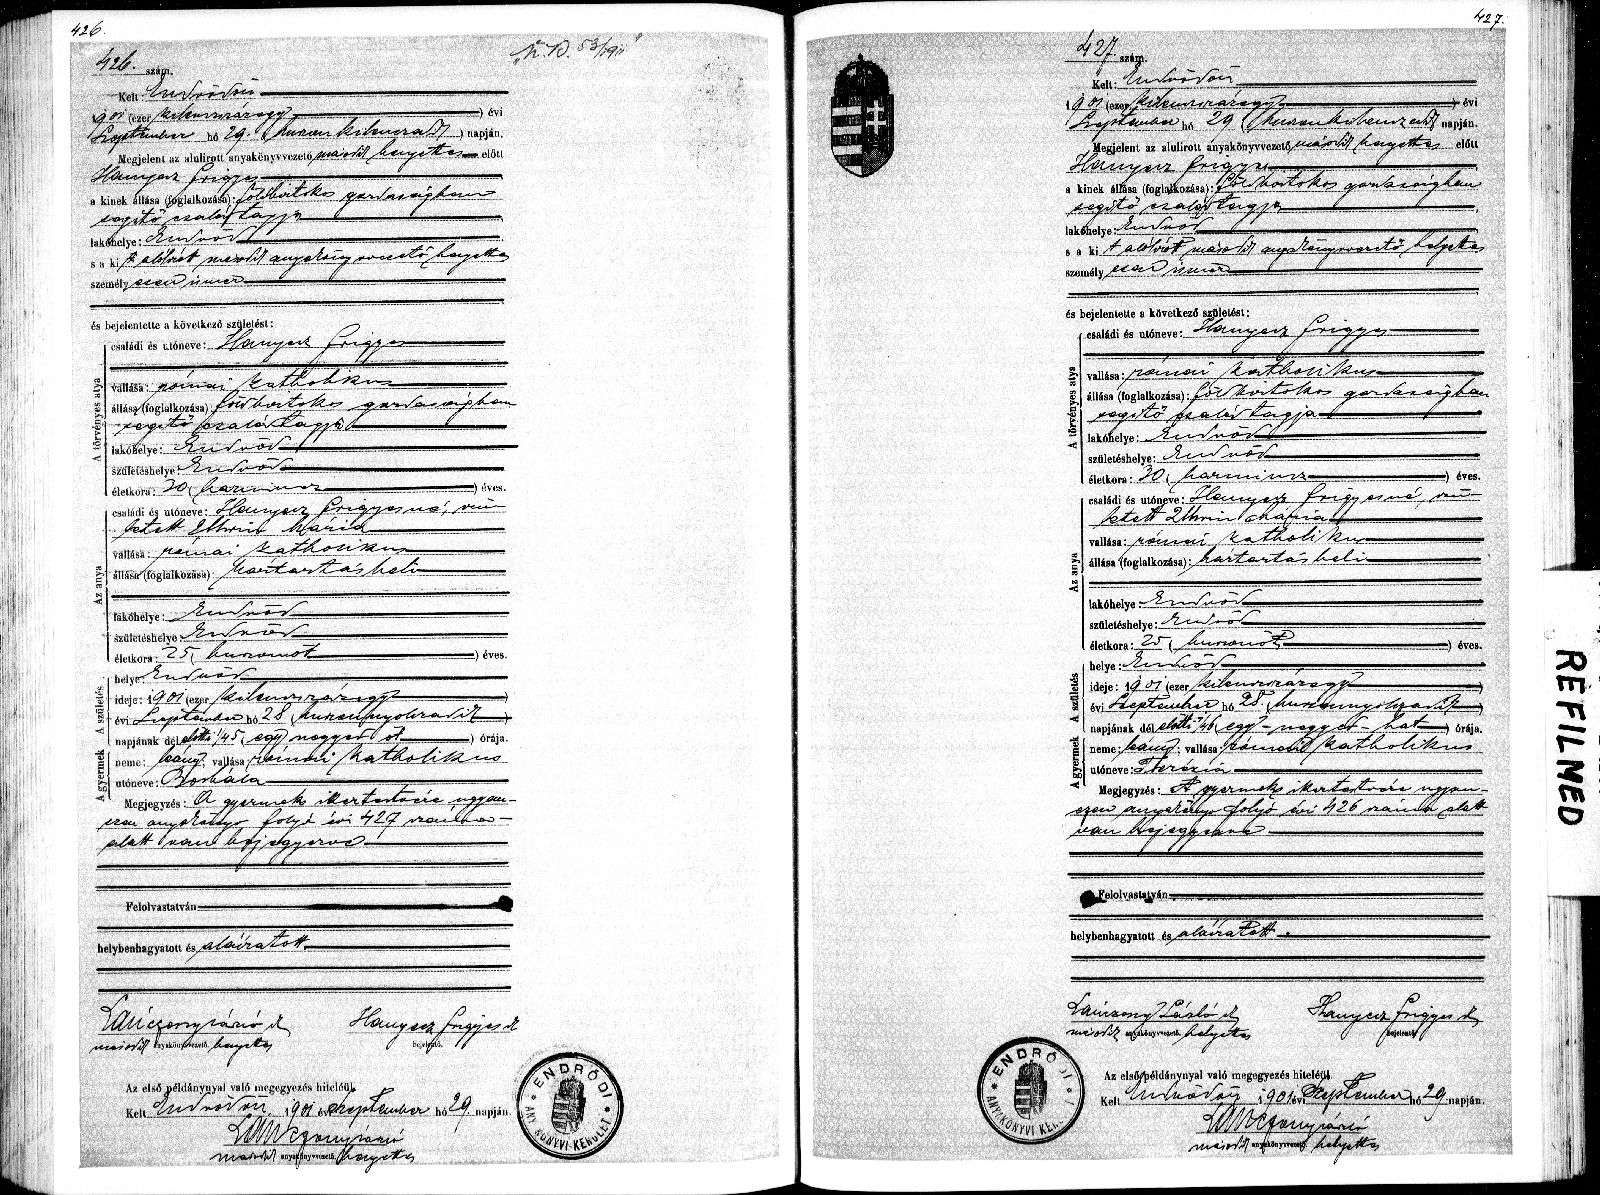 426.
426. szám.
Kelt: Endrődön
1901 (ezer kilenczszázegy) évi
Szeptember hó 29. (huszonkilenczedik) napján.
Megjelent az alulirott anyakönyvvezető, második helyettes előtt
Hanyecz Frigyes
a kinek állása (foglalkozása): földbirtokos gazdaságban
segítő családtagja
lakóhelye: Endrőd
s a ki t alólirt második anyakönyvvezető helyettes
személyesen ismer
és bejelentette a következő születést:
A törvényes atya
családi és utóneve: Hanyecz Frigyes
vallása: római katholikus
állása (foglalkozása): földbirtokos gazdaságban
segítő családtagja
lakóhelye: Endrőd
születéshelye: Endrőd
életkora: 30 (harmincz) éves.
Az anya
családi és utóneve: Hanyecz Frigyesné, szü-
letett Mária
vallása: római katholikus
állása (foglalkozása): háztartásbeli
lakóhelye: Endrőd
születéshelye: Endrőd
életkora: 25 (huszonöt) éves.
A születés
helye: Endrőd
ideje: 1901 (ezer kilenczszázegy)
évi Szeptember hó 28 (huszonnyolczadik)
napjának dél előtti 1/45 (egy negyed öt) órája.
A gyermek
neme: leány; vallása római katholikus
utóneve: Borbála
Megjegyzés: A gyermek ikertestvére ugyan-
ezen anyakönyv folyó évi 427 száma
alatt van bejegyezve
Felolvastatván
helybenhagyatott és aláiratott.
Hanyecz Frigyes sk
második anyakönyvvezető. helyettes
bejelentő.
Az első példánynyal való megegyezés hiteléül.
Kelt Endrődön, 1901 évi szeptember hó 29 napján.
második anyakönyvvezető. helyettes
ENDRŐDI ANYAKÖNYVI KERÜLET
427.
427. szám.
Kelt: Endrődön
1901 (ezer kilenczszázegy) évi
Szeptember hó 29 (huszonkilenczedik) napján.
Megjelent az alulirott anyakönyvvezető, második helyettes előtt
Hanyecz Frigyes
a kinek állása (foglalkozása): földbirtokos gazdaságban
segítő családtagja
lakóhelye: Endrőd
s a ki t alólirt második anyakönyvvezető helyettes
személyesen ismer
és bejelentette a következő születést:
A törvényes atya
családi és utóneve: Hanyecz Frigyes
vallása: római katholikus
állása (foglalkozása): földbirtokos gazdaságban
segítő családtagja
lakóhelye: Endrőd
születéshelye: Endrőd
életkora: 30 (harmincz) éves.
Az anya
családi és utóneve: Hanyecz Frigyesné, szü-
letett Mária
vallása: római katholikus
állása (foglalkozása): háztartásbeli
lakóhelye: Endrőd
születéshelye: Endrőd
életkora: 25 (huszonöt) éves.
A születés
helye: Endrőd
ideje: 1901 (ezer kilenczszázegy)
évi Szeptember hó 28. (huszonnyolczadik)
napjának dél előtti 1/46 (egy-negyed-hat) órája.
A gyermek
neme: leány; vallása római katholikus
utóneve: Terézia
Megjegyzés: A gyermek ikertestvére ugyan-
ezen anyakönyv folyó évi 426 száma alatt
van bejegyezve
Felolvastatván
helybenhagyatott és aláiratott.
László sk Hanyecz Frigyes sk
második anyakönyvvezető. helyettes
bejelentő.
Az első példánynyal való megegyezés hiteléül.
Kelt Endrődön 1901 évi szeptember hó 29 napján.
második anyakönyvvezető. helyettes
ENDRŐDI ANYAKÖNYVI
REFILMED